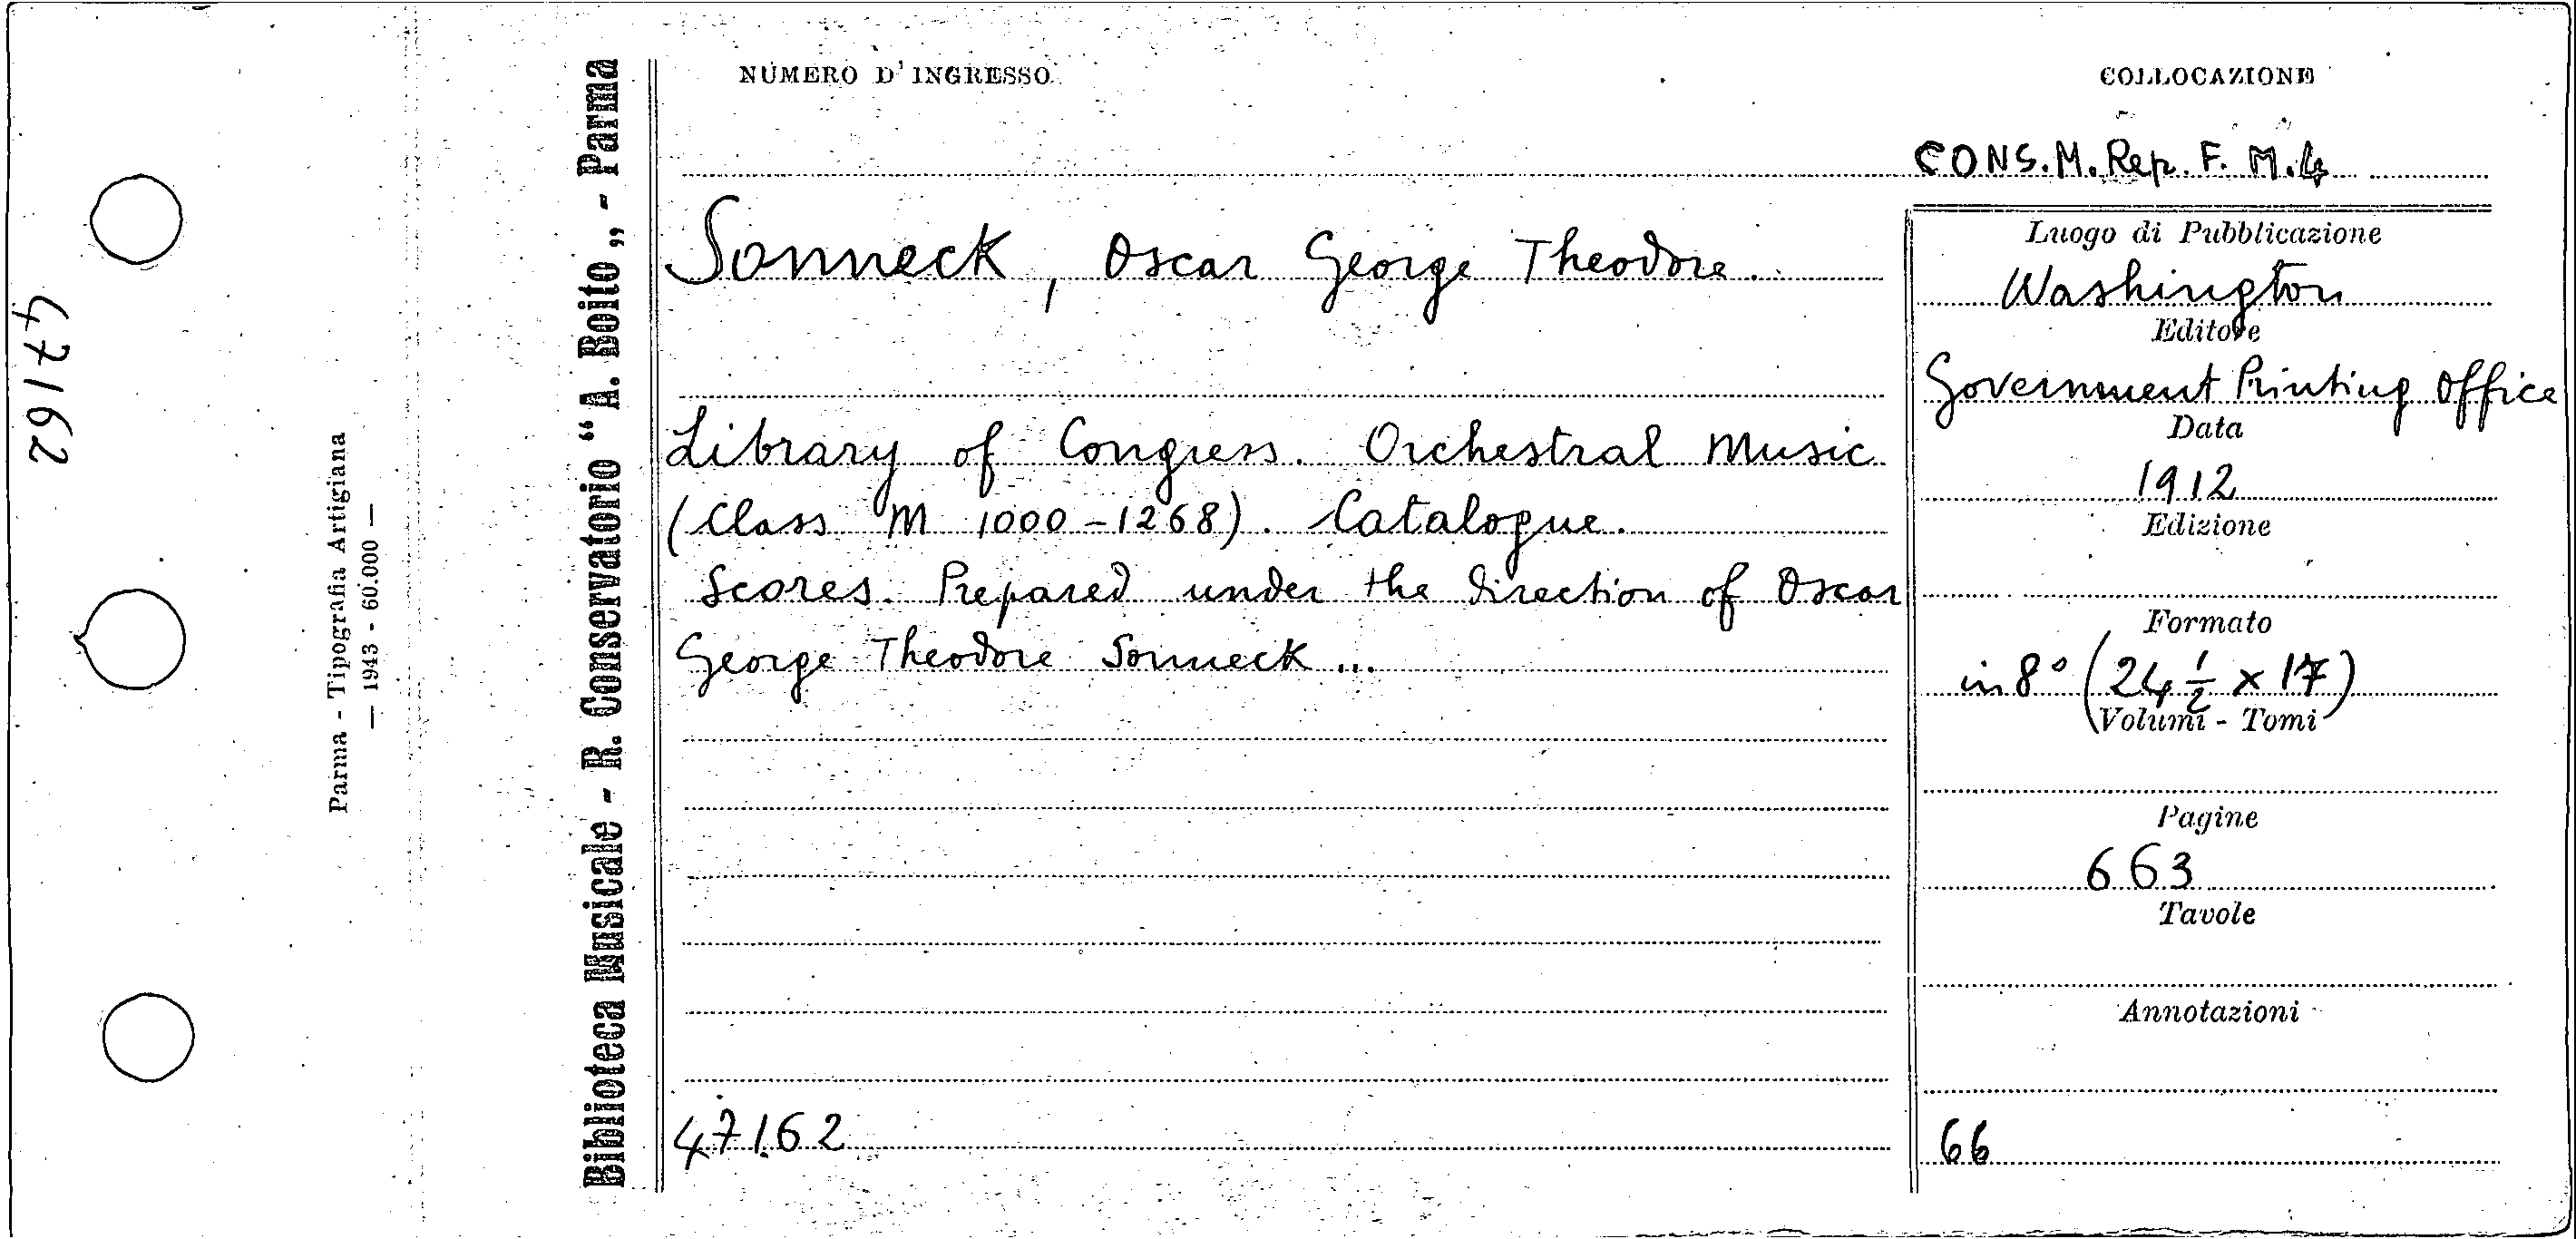 47162
Parma - Tipografia Artigiana
— 1943 - 60.000 —
Biblioteca Musicale - R. Conservatorio “ A. Boito „ - Parma
NUMERO D' INGRESSO
COLLOCAZIONE
CONS.M.Rep. F. M.4
Sonneck, Oscar George Theodore.
Library of Congress. Orchestral Music
(Class M 1000-1268). Catalogue.
Scores. Prepared under the direction of Oscar
George Theodore Sonneck ...
47162
Luogo di Pubblicazione
Washington
Editore
Government Printing Office
Data
1912
Edizione
Formato
in 8° (24 ½ x 17)
Volumi - Tomi
Pagine
663
Tavole
Annotazioni
66